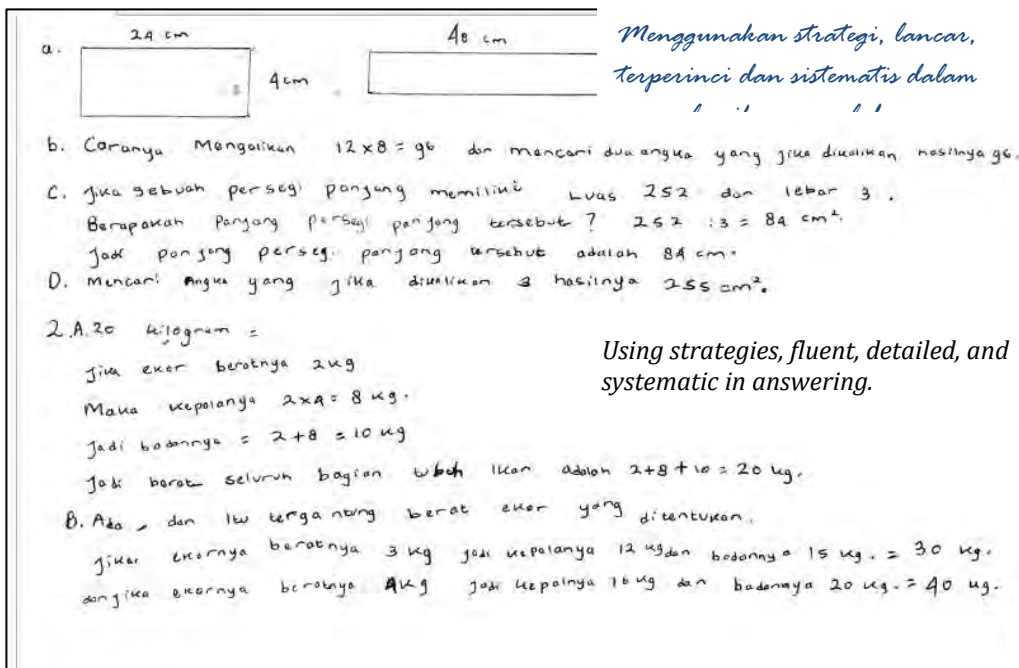 a. 24 cm 4 cm 48 cm
Menggunakan strategi, lancar,
terperinci dan sistematis dalam
b. Caranya Mengalikan 12 x 8 = 96 dan mencari dua angka yang jika dikalikan hasilnya 96.
C. Jika sebuah persegi panjang memiliki Luas 252 dan lebar 3.
Berapakah Panjang persegi panjang tersebut? 252 : 3 = 84 cm².
Jadi panjang persegi panjang tersebut adalah 84 cm.
D. Mencari Angka yang jika dikalikan 3 hasilnya 255 cm².
2.A. 20 kilogram =
Jika ekor beratnya 2 kg
Using strategies, fluent, detailed, and
systematic in answering.
Maka kepalanya 2x4 = 8 kg.
Jadi badannya = 2+8 = 10 kg
Jadi berat seluruh bagian tubuh Ikan adalah 2+8+10 = 20 kg.
B. Ada, dan Itu tergantung berat ekor yang ditentukan.
Jika ekornya beratnya 3 kg jadi kepalanya 12 kg dan badannya 15 kg. = 30 kg.
dan jika ekornya beratnya 4kg jadi kepalnya 16 kg dan badannya 20 kg. = 40 kg.